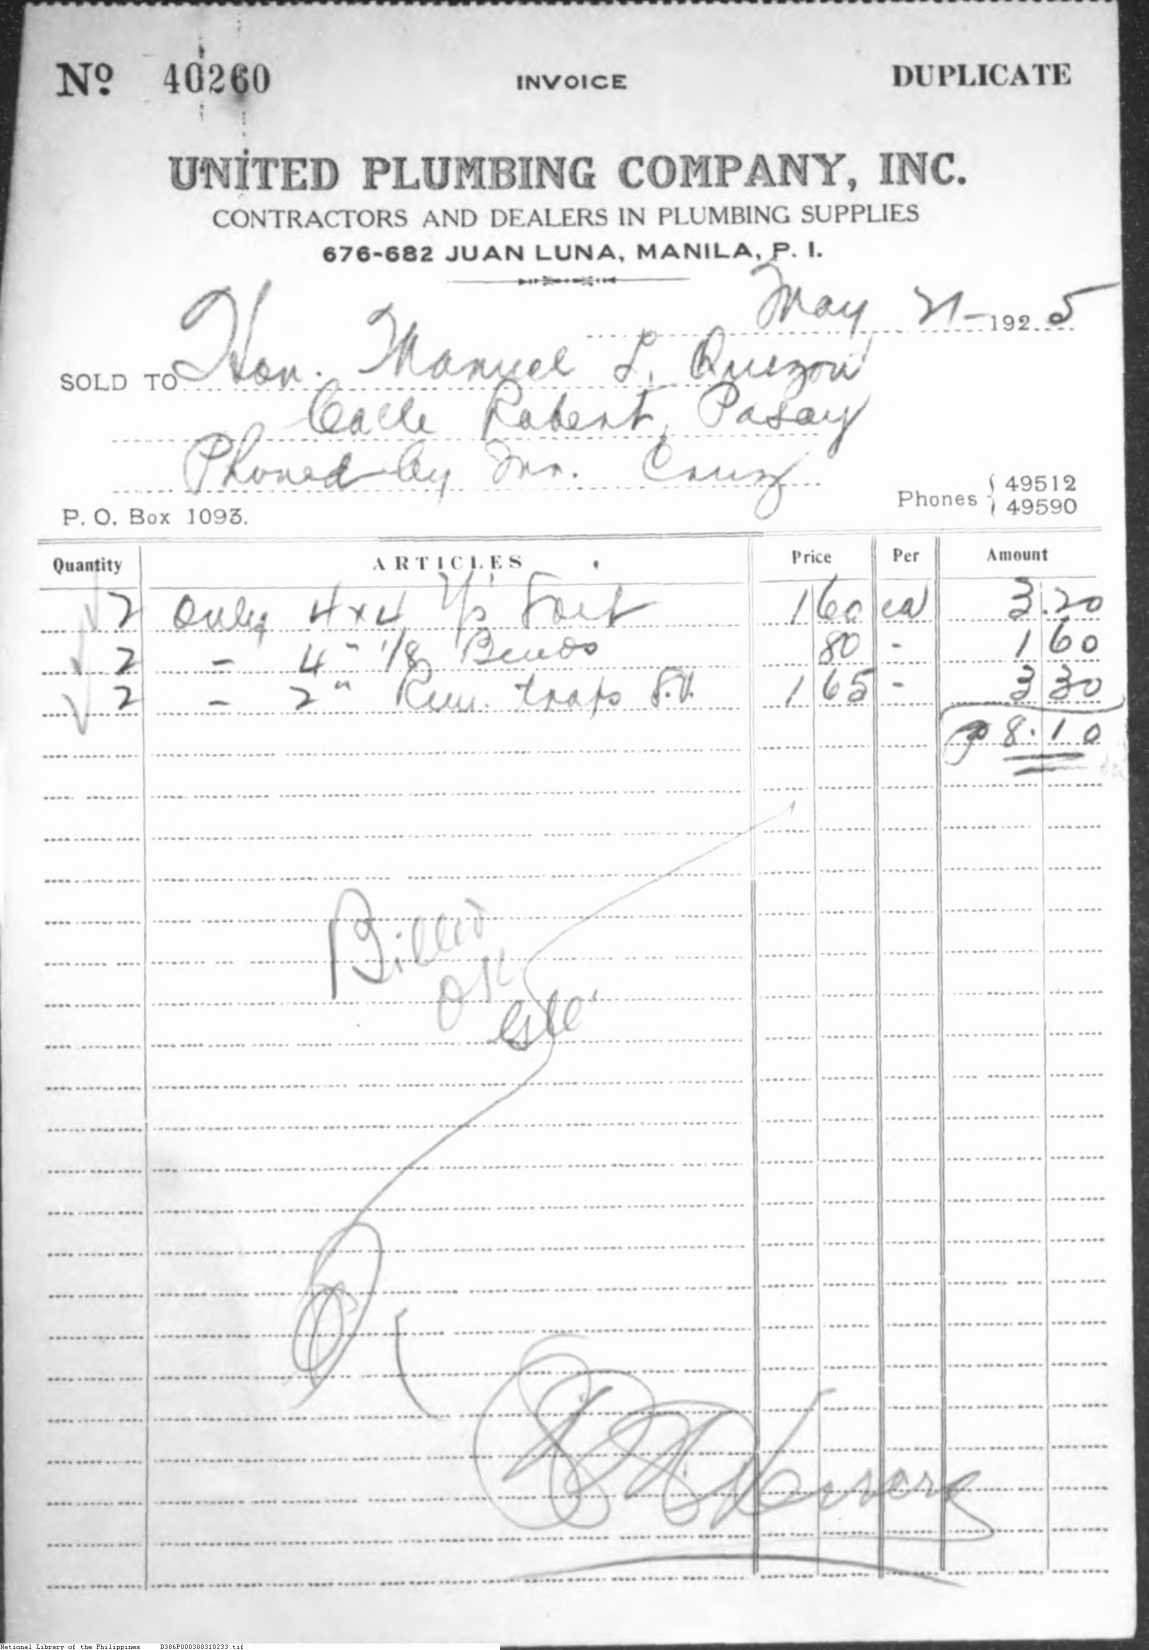 Nº 40260 INVOICE DUPLICATE
UNITED PLUMBING COMPANY, INC.
CONTRACTORS AND DEALERS IN PLUMBING SUPPLIES
676-682 JUAN LUNA, MANILA, P. I.
May 21- 1925
SOLD TO Hon. Manuel L. Quezon
Calle Robert, Pasay
Phoned by Mr. Cruz
Phones { 49512
49590
P. O. Box 1093.
Quantity ARTICLES Price Per Amount
2 Only 4x4 160 ea 3.20
2 - 4" 1/8 Bends 80 - 1 60
2 - 2" Run. traps 1 65 - 3 30
₱ 8.10
Billed
OK
National Library of the Philippines D386P000308310233.tif